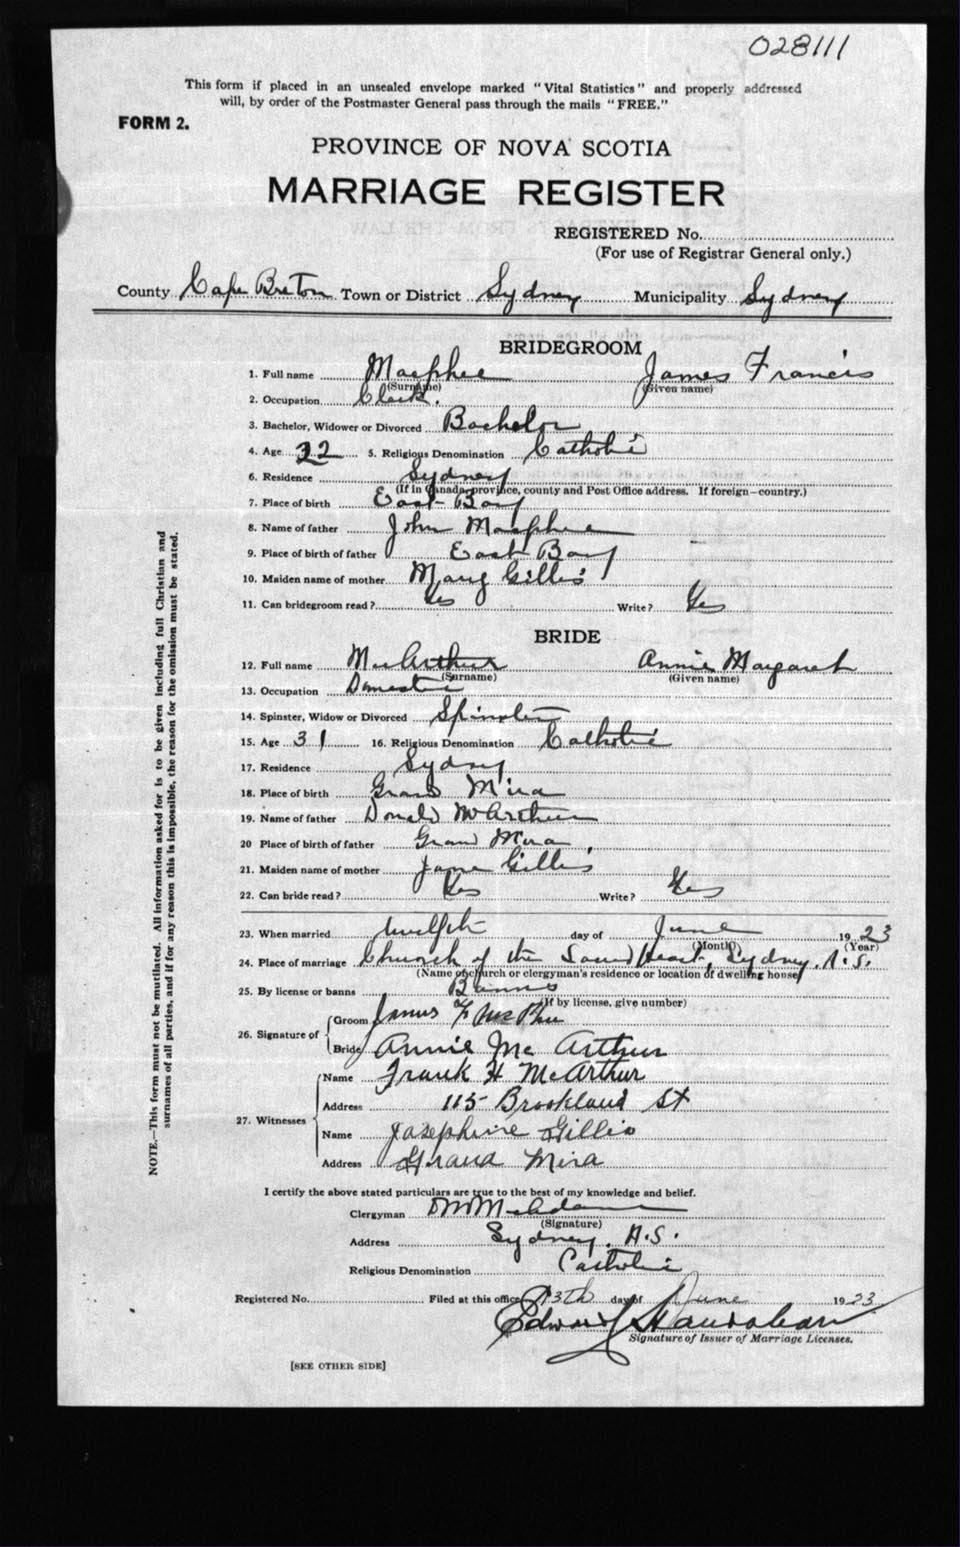 028111
This form if placed in an unsealed envelope marked "Vital Statistics" and properly addressed
will, by order of the Postmaster General pass through the mails "FREE."
FORM 2.
PROVINCE OF NOVA SCOTIA
MARRIAGE REGISTER
REGISTERED No.
(For use of Registrar General only.)
County Cape Breton Town or District Sydney Municipality Sydney
BRIDEGROOM
1. Full name Macphee James Francis
(Surname) (Given name)
2. Occupation Clerk.
3. Bachelor, Widower or Divorced Bachelor
4. Age 22 5. Religious Denomination Catholic
6. Residence Sydney
(If in Canada, province, county and Post Office address. If foreign—country.)
7. Place of birth East Bay
8. Name of father John Macphee
9. Place of birth of father East Bay
10. Maiden name of mother Mary Gillis
11. Can bridegroom read? Yes Write? Yes
BRIDE
12. Full name MacArthur Annie Margaret
(Surname) (Given name)
13. Occupation Domestic
14. Spinster, Widow or Divorced Spinster
15. Age 31 16. Religious Denomination Catholic
17. Residence Sydney
18. Place of birth Grand Mira
19. Name of father Donald McArthur
20 Place of birth of father Grand Mira
21. Maiden name of mother Jane Gillis
22. Can bride read? Yes Write? Yes
23. When married twelfth day of June 1923
(Month) (Year)
24. Place of marriage Church of the Sacred Heart, Sydney. N.S.
(Name of church or clergyman's residence or location of dwelling house)
25. By license or banns Banns
(If by license, give number)
26. Signature of Groom James F McPhee
Bride Annie Mc Arthur
27. Witnesses Name Frank H McArthur
Address 115 Brookland St
Name Josephine Gillis
Address Grand Mira
I certify the above stated particulars are true to the best of my knowledge and belief.
Clergyman
(Signature)
Address Sydney. N.S.
Religious Denomination Catholic
Registered No. Filed at this office 13th day of June 1923
Edward
Signature of Issuer of Marriage Licenses.
[SEE OTHER SIDE]
NOTE.—This form must not be mutilated. All information asked for is to be given including full Christian and
surnames of all parties, and if for any reason this is impossible, the reason for the omission must be stated.